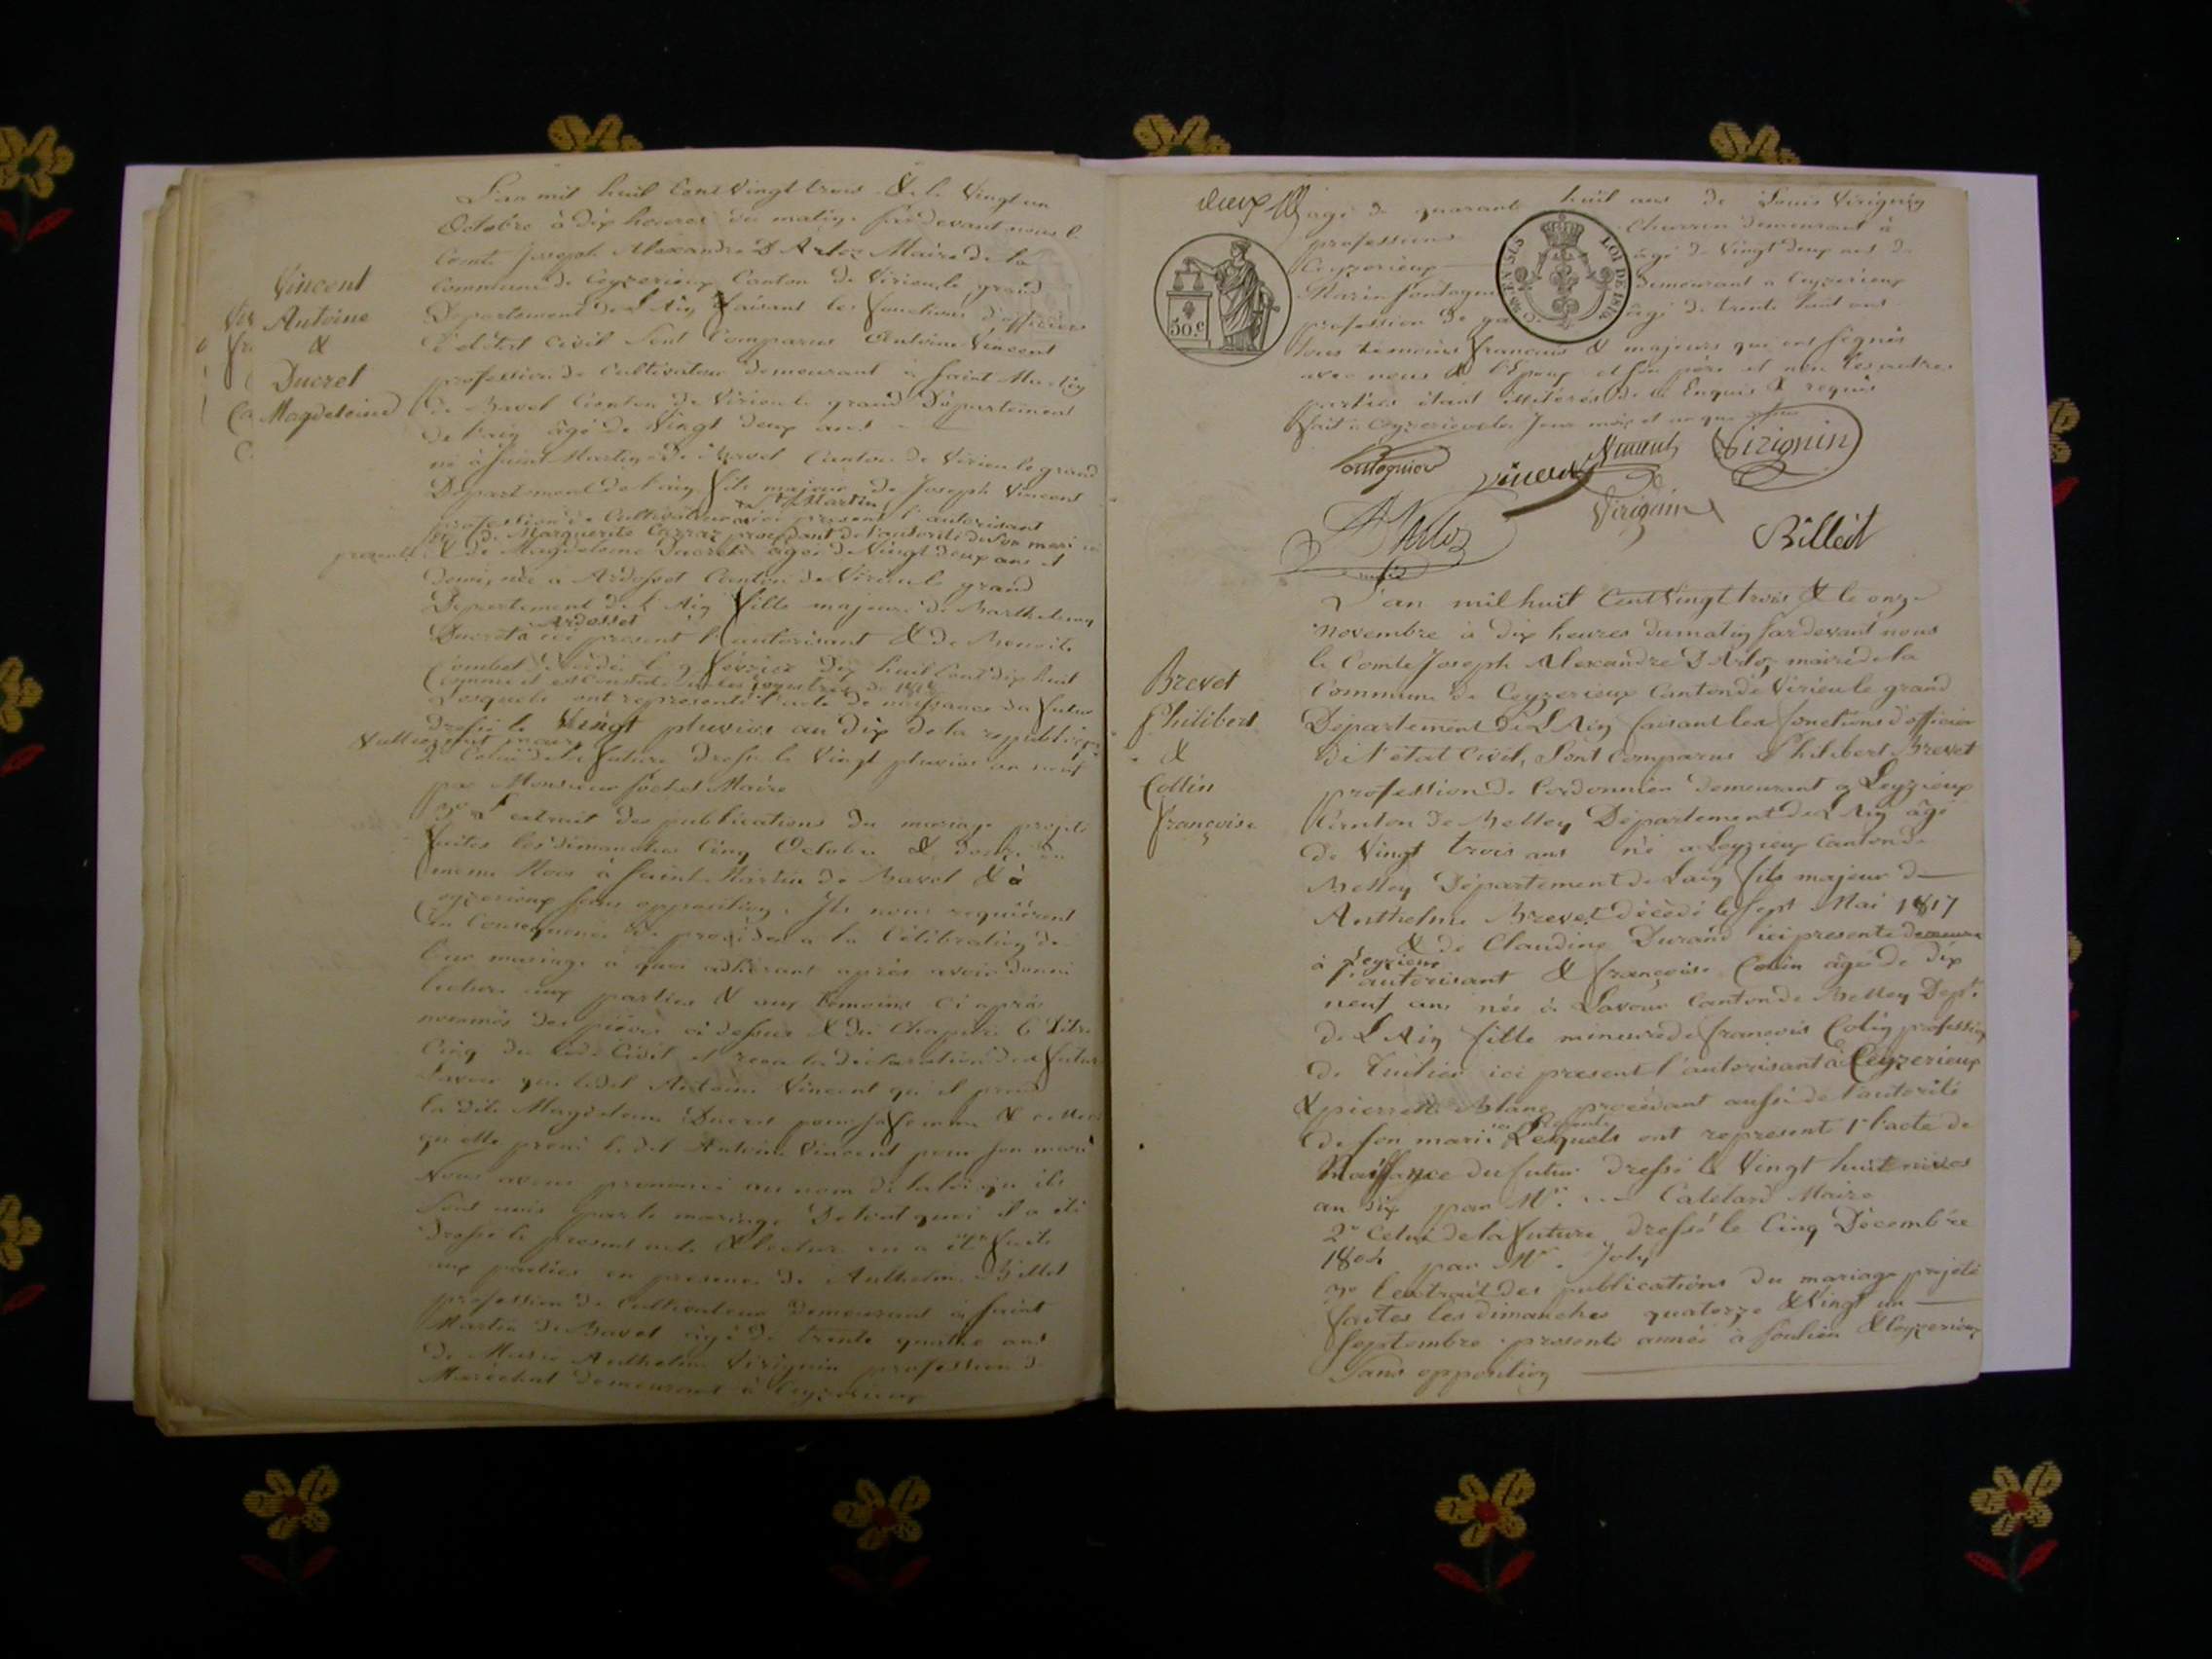 L'an mil huit Cent Vingt trois & le Vingt un
Octobre à dix heures du matin par devant nous le
Comte Joseph Alexandre D Arloz Maire de la
Commune de Ceyzerieux Canton de Virieu le grand
Departement de L'Ain faisant les fonctions d'officier
de l'état Civil Sont Comparus Antoine Vincent
profession de Cultivateur demeurant à Saint Martin
de Bavel Canton de Virieu le grand Département
de l'ain âgé de Vingt deux ans
né à Saint Martin de Bavel Canton de Virieu le grand
Departement de l'ain fils majeur de Joseph Vincent
St Martin
profession de Cultivateur ici présent l'autorisant
& de Marguerite procédant de l'autorité de son mari ici
présente & de Magdeleine Ducret âgée de Vingt deux ans et
demi, née à Ardosset Canton de Virieu le grand
Departement de l'Ain fille majeure de Barthelemy
Ardosset
Ducret à ici présent l'autorisant & de Benoite
Combet décédée le 9 février dix huit Cent dix huit
Comme il est Constaté les registres de 1818
Lesquels ont représenté l'acte de naissance du futur
dressé le Vingt pluviose an dix de la republique
2º Celui de la future dressé le Vingt pluviose an neuf
par Monsieur Maire
3º L'extrait des publications du mariage projeté
faites les dimanches Cinq Octobre & douze du
même Mois à Saint Martin de Bavel & à
Ceyzerieux sans opposition. Ils nous requièrent
en Consequence de proceder a la Célébration de
leur mariage à quoi adhérant après avoir donné
lecture aux parties & aux témoins Ci après
nommés des pièces ci dessus & du Chapitre 6 titre
Cinq du Code Civil et reçu la déclaration des futurs
Savoir que ledit Antoine Vincent qu'il prend
la dite Magdeleine Ducret pour sa femme & celle ci
qu'elle prend le dit Antoine Vincent pour son mari
Nous avons prononcé au nom de la loi qu'ils
Sont unis par le mariage De tout quoi il a été
dressé le présent acte & lecture en a été faite
aux parties en presence de Anthelme Billet
profession de Cultivateur demeurant à Saint
Martin de Bavel âgé de trente quatre ans
de Anthelme Virignin profession de
Maréchal demeurant à Ceyzerieux
Vincent
Antoine
&
Ducret
Magdeleine
deux
agé de quarante huit ans de Louis Virignin
profession Charron demeurant à
Ceyzerieux agé de Vingt deux ans de
Marin fontagni demeurant a Ceyzerieux
profession de âgé de trente huit ans
tous témoins français & majeurs qui ont signés
avec nous & l'Epoux et son père et non les autres
parties étant illitérés de ce Enquis & requis
fait à Ceyzerieux les Jour mois et an que dessus
50.c
LOI DE 1816
Vincent
Virignin
D'Arloz
Virignin
Billet
L'an mil huit Cent Vingt trois & le onze
Novembre à dix heures du matin par devant nous
le Comte Joseph Alexandre D Arloz maire de la
Commune de Ceyzerieux Canton de Virieu le grand
Departement de L'Ain faisant les fonctions d'officier
de l'état Civil, Sont Comparus Philibert Brevet
profession de Cordonnier demeurant a Leyzieux
Canton de Belley Département de L'Ain âgé
de Vingt trois ans né a Leyzieux Canton de
Belley Département de Lain fils majeur de
Anthelme Brevet décédé le sept Mai 1817
& de Claudine Durand ici presente demeurant
à Leyzieux
l'autorisant & françoise Colin âgée de dix
neuf ans née à Lavour Canton de Belley Dept
de L'Ain fille mineure de françois Colin profession
de Tuilier ici présent l'autorisant à Ceyzerieux
& pierrette Blanc procédant aussi de l'autorité
ici présente
de son mari Lesquels ont represent 1º l'acte de
Naissance du futur dressé le Vingt huit nivos
an six par Mr. ... Catelard Maire
2º Celui de la future dressé le Cinq Décembre
1804 par Mr. Joly
3º l'extrait des publications du mariage projeté
faites les dimanches quatorze & Vingt un
Septembre presente année à & Ceyzerieux
Sans opposition
Brevet
Philibert
&
Collin
françoise